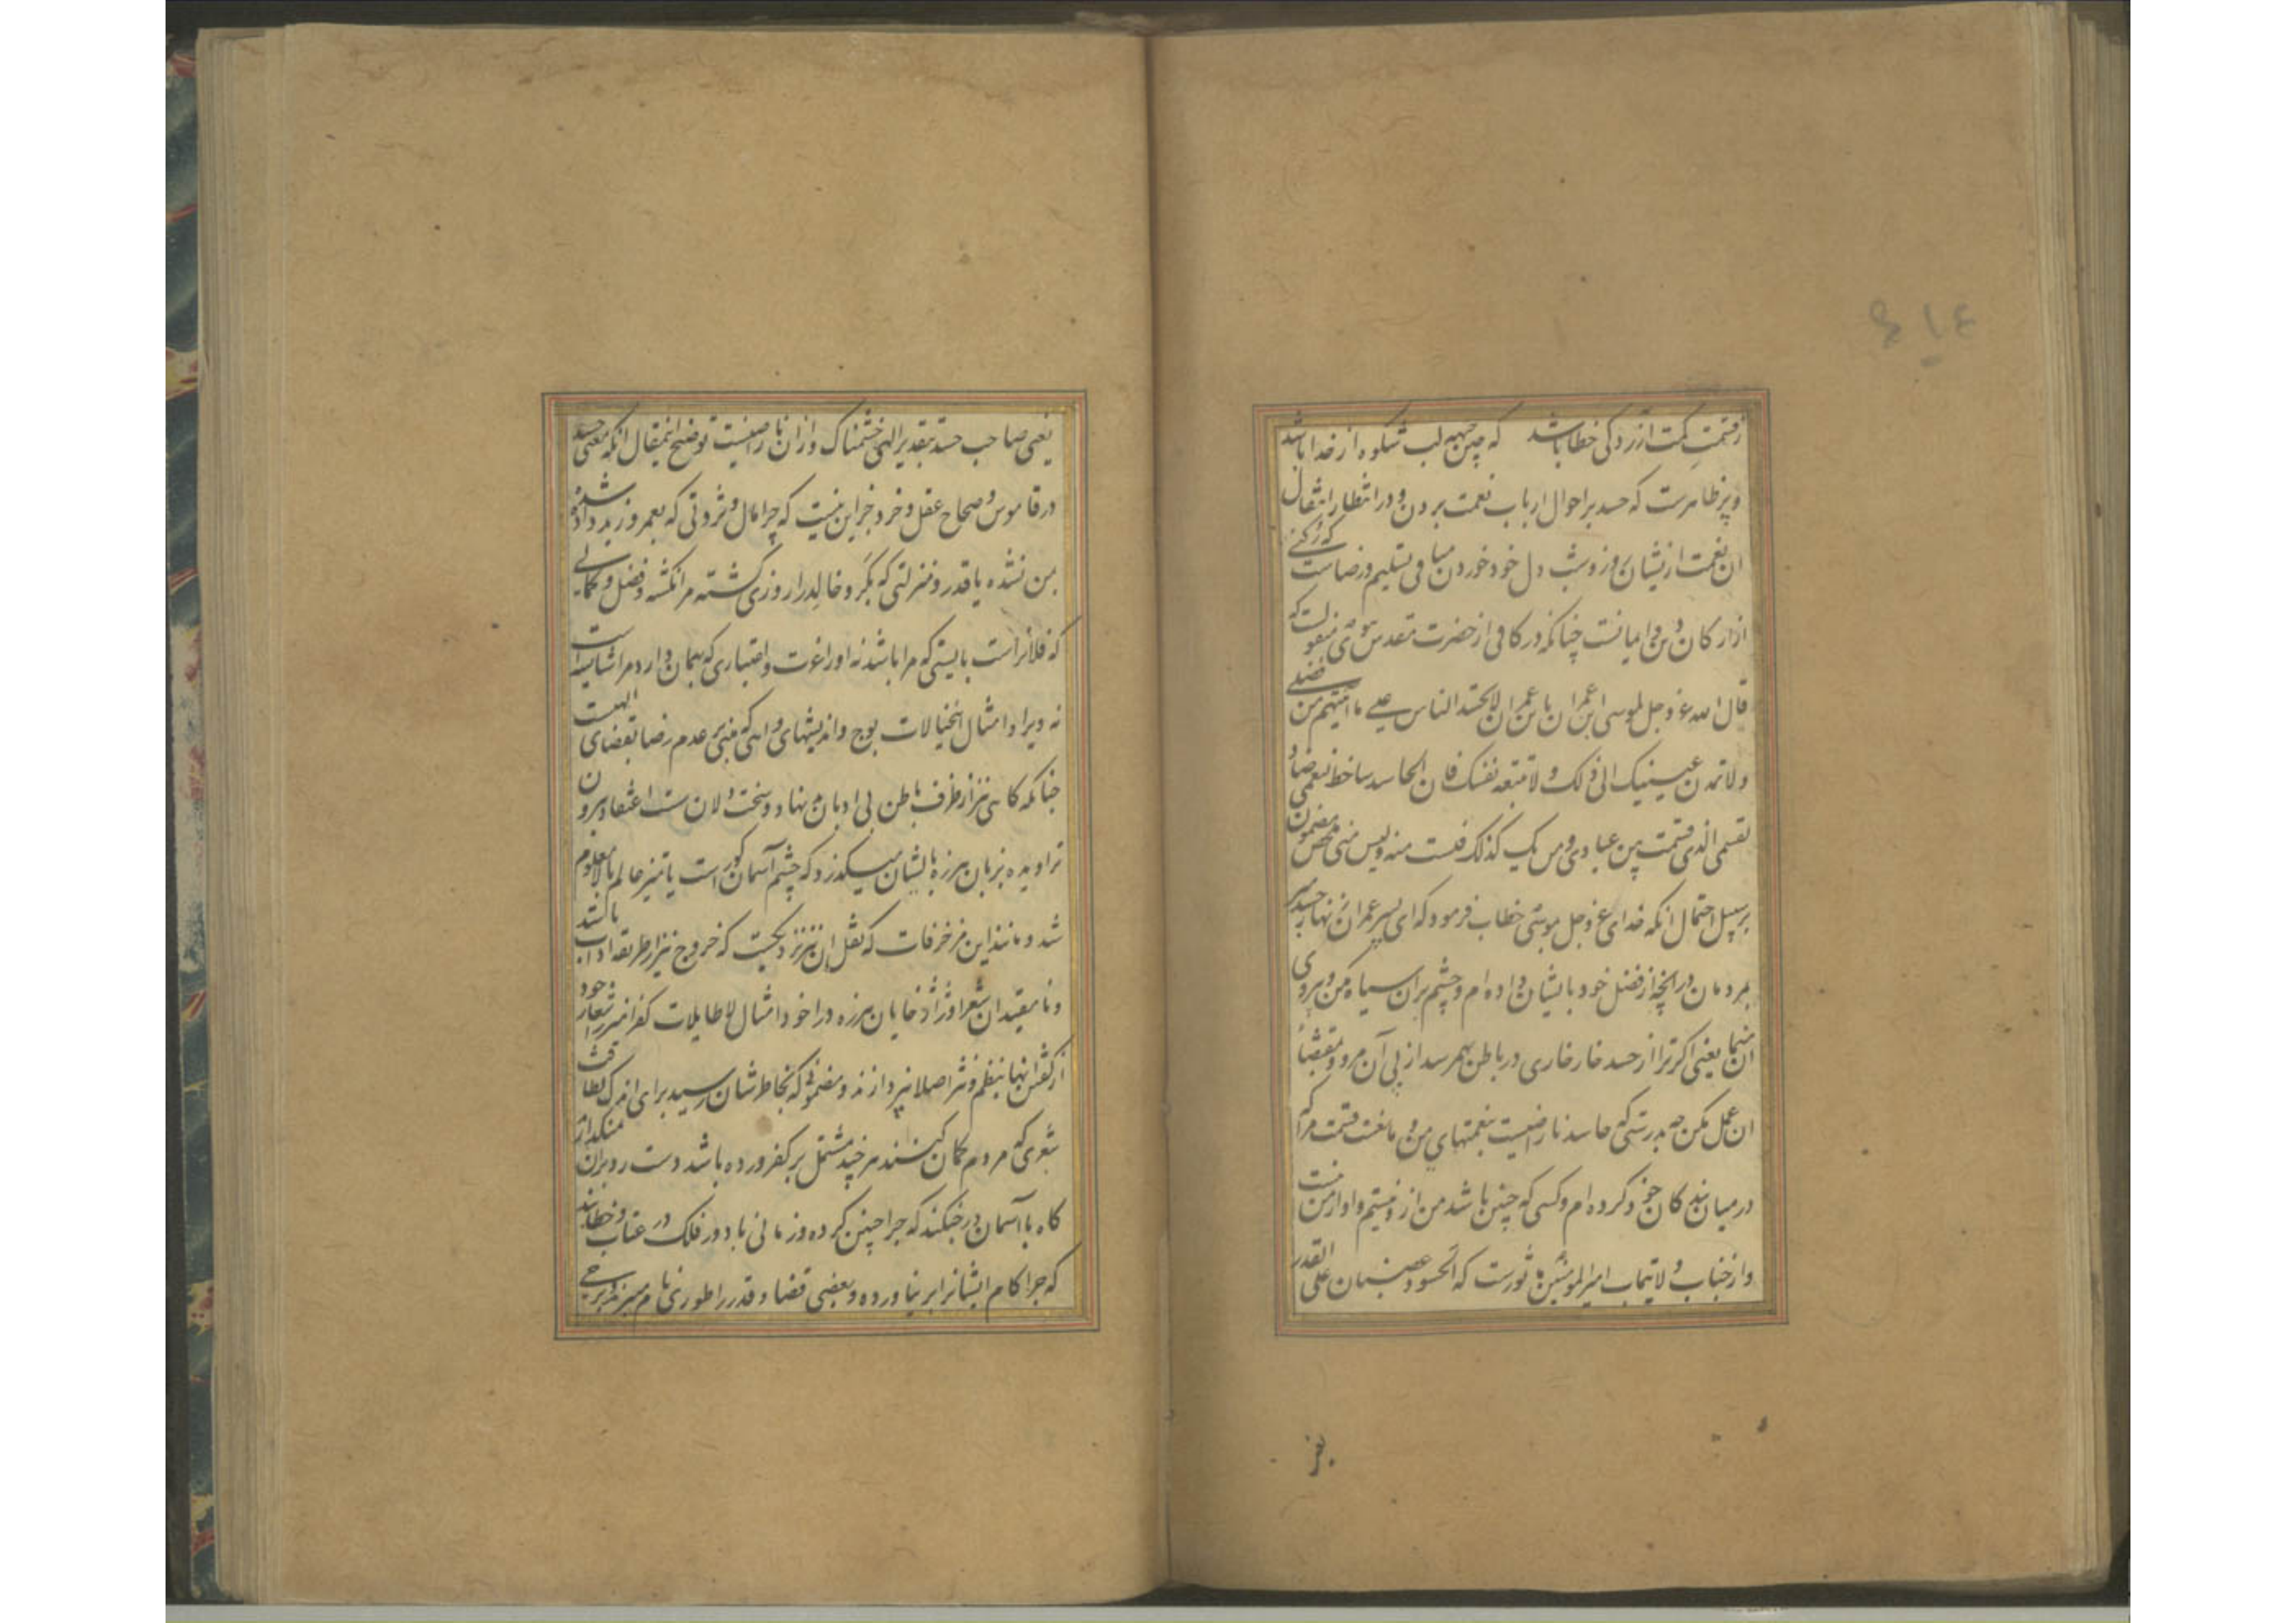 ز قسمتت آزردگی خطا باشد که چین جبهه لب شکوه از خدا باشد
و نیز ظاهرست که حسد بر احوال ارباب نعمت بردن و در انتظار انتقال
ان نعمت ازیشان روز و شب دل خود خوردن منافی تسلیم و رضاست که رکنی
از ارکان دین و ایمانست چنانکه در کافی از حضرت مقدس نبوی منقولست که
قال الله عز وجل لموسی ابن عمران یا بن عمران لا تحسد الناس علی ما اتیتهم من فضلی
ولا تمدن عینیک الی ذلک ولا تتبعه نفسک فان الحاسد ساخط لنعمی صاد
لقسمی الذی قسمت بین عبادی ومن یک کذلک فلست منه ولیس منی مضمون
بر سبیل احتمال انکه خدای عز وجل بموسی خطاب فرمود که ای پسر عمران زنهار حسد مبر
بمردمان در انچه از فضل خود بایشان داده ام و چشم بران سیاه مکن و پیروی
ان منما یعنی اکر ترا از حسد خار خاری در باطن بهم رسد از پی آن مرو و بمقتضای
ان عمل مکن چه بدرستی که حاسد ناراضیست بنعمتهای من و مانعست قسمت مرا که
در میان بندکان خود کرده ام و کسی که چنین باشد من ازو نیستم و او از من نیست
و از جناب ولایتماب امیر المومنین ماثورست که الحسود غضبان علی القدر
یعنی صاحب حسد بتقدیر الهی خشمناک و ازان ناراضیست توضیح اینمقال انکه معنی حسد
در قاموس و صحاح عقل و خرد جز این نیست که چرا مال و ثروتی که بعمرو و زید داده شده
بمن نشده یا قدر و منزلتی که بکر و خالد را روزی کشته مرا نکشته و فضل و کمالی
که فلانراست بایستی که مرا باشد نه او را عزت و اعتباری که بهمان دارد مرا شایسته است
نه ویرا و امثال اینخیالات پوچ و اندیشهای واهی که مبنی بر عدم رضا بقضای الهیست
چنانکه کاهی نیز از ظرف باطن بی ادبان بد نهاد و سخت دلان سست اعتقاد بیرون
تراویده بزبان هرزه ایشان میکذرد که چشم آسمان کور است یا تمیز عالم بالا معلوم
شد و مانند این مزخرفات که نقل ان نیز نزدیکست که خروج نیز از طریقه اداب باشد
و نامقیدان شعرا و ژاژ خایان هرزه درا خود امثال لاطایلات کفر امیز را شعار خود
از کفتن انها بنظم و نثر اصلا نپردازند و مضمونی که بخاطرشان رسید برای اندک لطافت
شعری که مردم کمان کنند هر چند مشتمل بر کفر و رده باشد دست رد بران نمیکذارند
کاه با آسمان در جنکند که چرا چنین کرده و زمانی با دور فلک در عتاب و خطابند
که چرا کام ایشانرا بر نیاورده و بعضی قضا و قدر را طوری نام میبرند